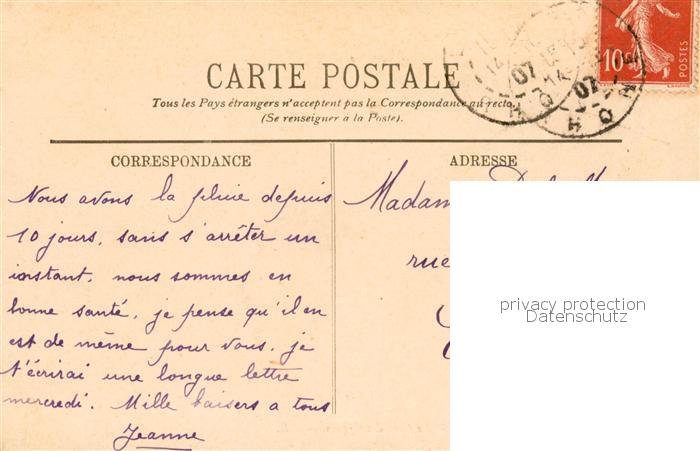 CARTE POSTALE
Tous les Pays étrangers n'acceptent pas la Correspondance au recto.
(Se renseigner à la Poste).
CORRESPONDANCE
Nous avons la pluie depuis
10 jours, sans s'arrêter un
instant, nous sommes en
bonne santé, je pense qu'il en
est de même pour vous, je
t'écrirai une longue lettre
mercredi. Mille baisers a tous
Jeanne
ADRESSE
Madam
rue
10
POSTES
07
07
privacy protection
Datenschutz